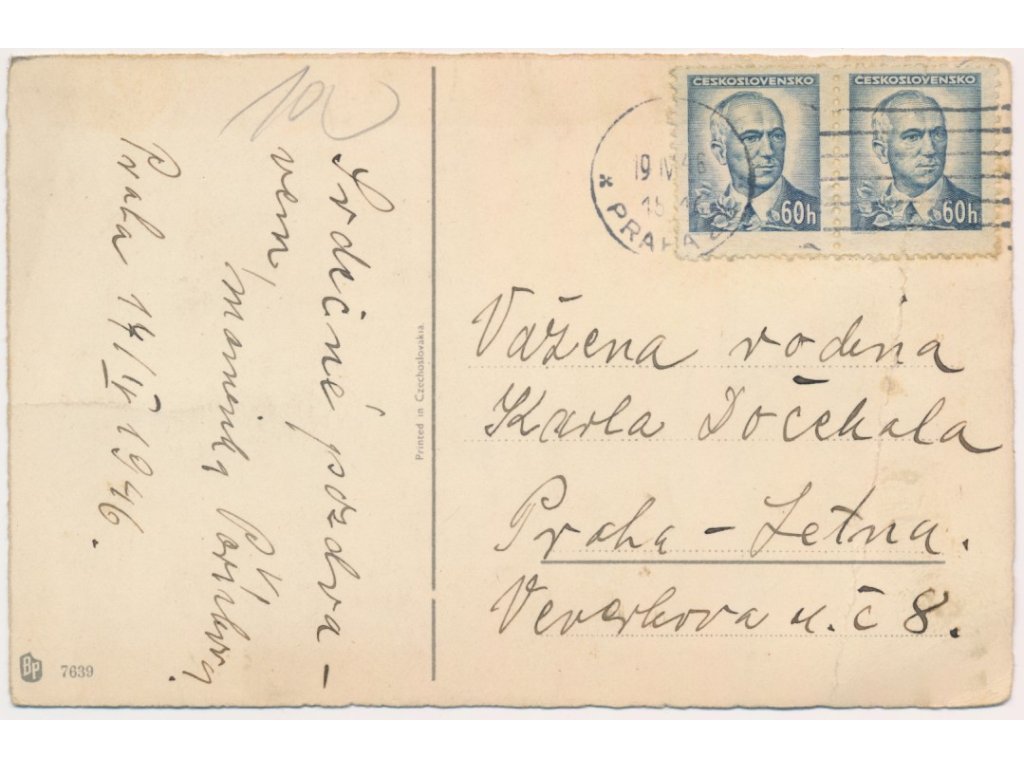 10
Srdečné pozdra-
vem,
Praha 17/IV 1946.
Printed in Czechoslovakia.
BP 7639
ČESKOSLOVENSKO
60h
ČESKOSLOVENSKO
60h
19 IV 46
PRAHA
Vážena rodina
Karla Dočekala
Praha - Letna.
Veverkova u. č 8.